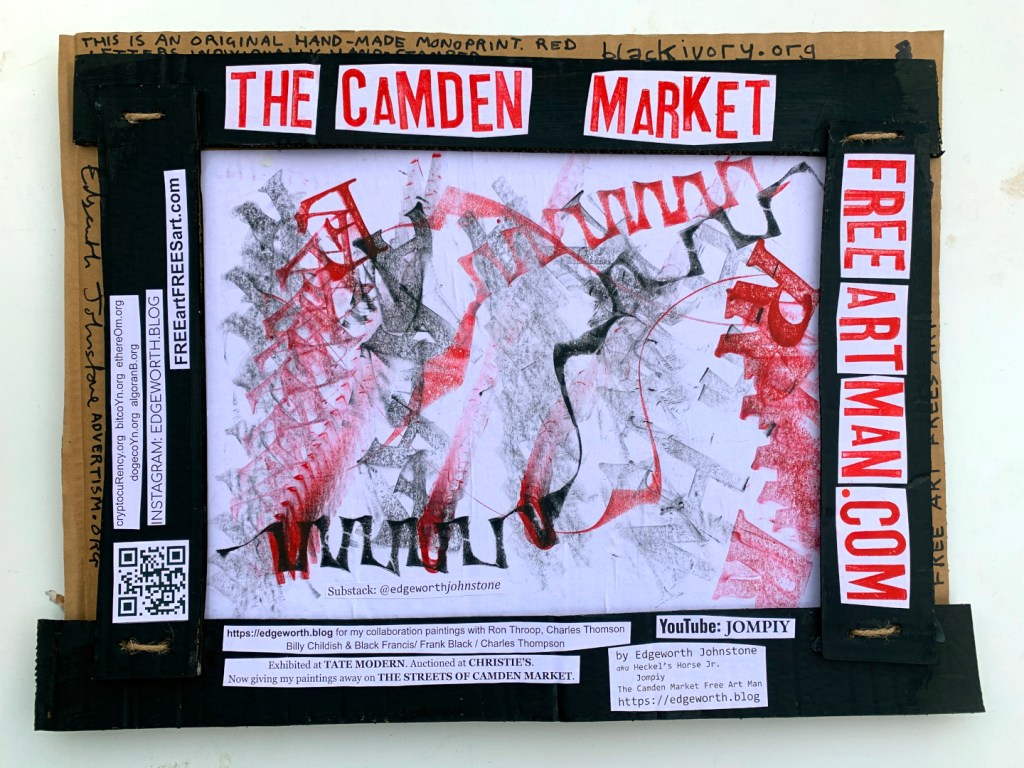 THIS IS AN ORIGINAL HAND-MADE MONOPRINT. RED
LETTERS INDIVIDUALLY HAND-STAMPED
blackivory.org
THE CAMDEN MARKET
FREE ARTMAN.COM
FREE ART FREES ART
Edgeworth Johnstone ADVERTISM.ORG
FREEartFREESart.com
INSTAGRAM: EDGEWORTH.BLOG
cryptocuRency.org bitcoYn.org ethereOm.org
dogecoYn.org algoranB.org
Substack: @edgeworthjohnstone
https://edgeworth.blog for my collaboration paintings with Ron Throop, Charles Thomson
Billy Childish & Black Francis/ Frank Black / Charles Thompson
Exhibited at TATE MODERN. Auctioned at CHRISTIE'S.
Now giving my paintings away on THE STREETS OF CAMDEN MARKET.
YouTube: JOMPIY
by Edgeworth Johnstone
aka Heckel's Horse Jr.
Jompiy
The Camden Market Free Art Man
https://edgeworth.blog